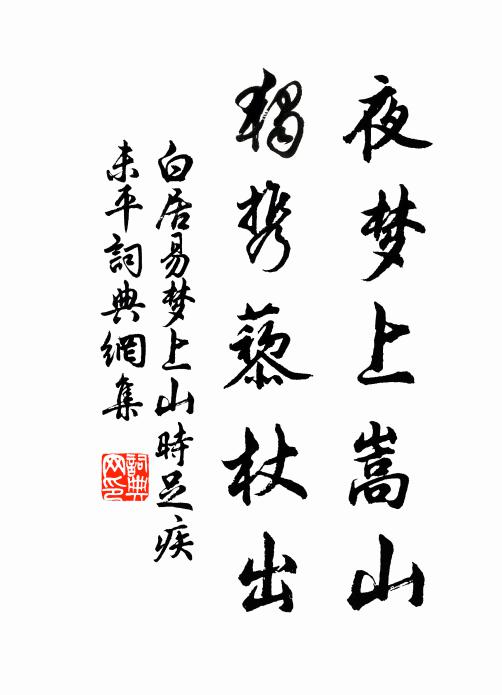 夜梦上嵩山
独携藜杖出
白居易梦上山時足疾
未平詞典網集
詞典網印